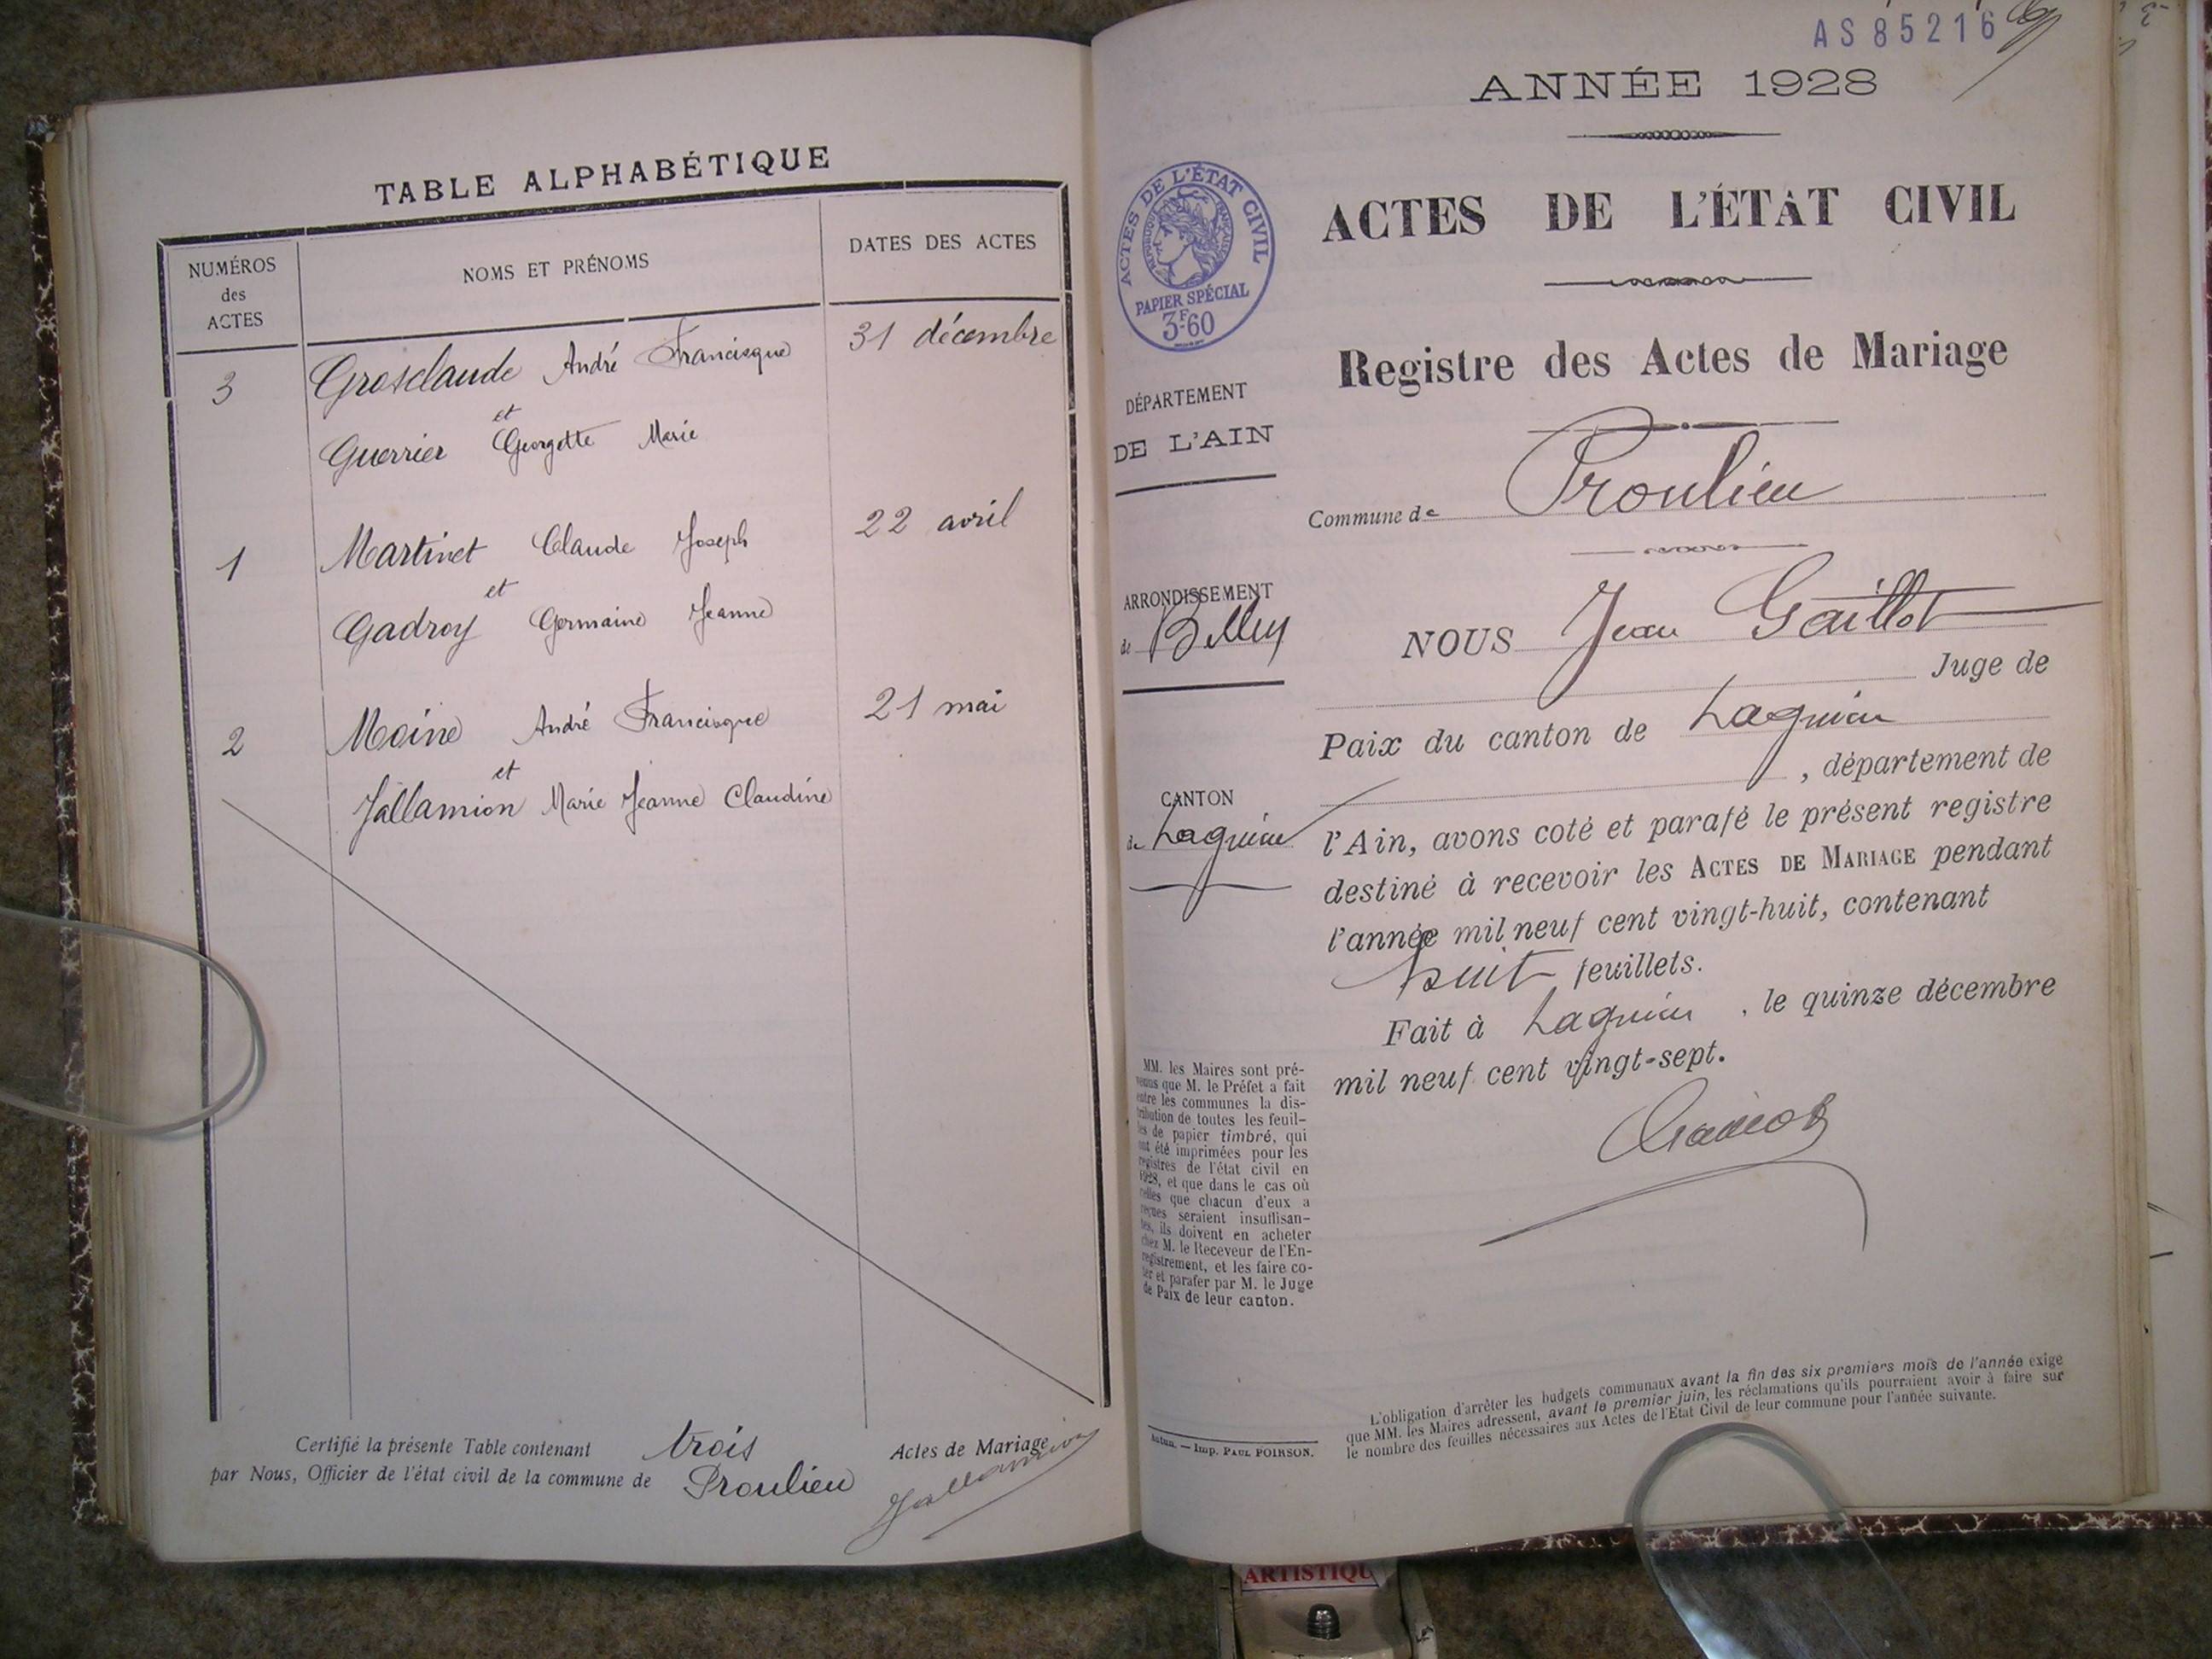 TABLE ALPHABÉTIQUE
NUMÉROS
des
ACTES
NOMS ET PRÉNOMS
DATES DES ACTES
3 Grosclaude André Francisque 31 décembre
et
Guerrier Georgette Marie
1 Martinet Claude Joseph 22 avril
et
Gadroy Germaine Jeanne
2 Moine André Francisque 21 mai
et
Jallamion Marie Jeanne Claudine
Certifié la présente Table contenant trois Actes de Mariage
par Nous, Officier de l'état civil de la commune de Proulieu
Jallamion
AS85216
ANNÉE 1928
ACTES DE L'ÉTAT CIVIL
Registre des Actes de Mariage
ACTES DE L'ÉTAT CIVIL
RÉPUBLIQUE FRANÇAISE
PAPIER SPÉCIAL
3F.60
DÉPARTEMENT
DE L'AIN
Commune de Proulieu
ARRONDISSEMENT
de Belley
CANTON
de Lagnieu
NOUS Jean Gaillot
Juge de
Paix du canton de Lagnieu
, département de
l'Ain, avons coté et parafé le présent registre
destiné à recevoir les ACTES DE MARIAGE pendant
l'année mil neuf cent vingt-huit, contenant
huit feuillets.
Fait à Lagnieu, le quinze décembre
mil neuf cent vingt-sept.
MM. les Maires sont pré-
venus que M. le Préfet a fait
entre les communes la dis-
tribution de toutes les feuil-
les de papier timbré, qui
ont été imprimées pour les
registres de l'état civil en
1928, et que dans le cas où
celles que chacun d'eux a
reçues seraient insuffisan-
tes, ils doivent en acheter
chez M. le Receveur de l'En-
registrement, et les faire co-
ter et parafer par M. le Juge
de Paix de leur canton.
Autun. — Imp. PAUL POIRSON.
L'obligation d'arrêter les budgets communaux avant la fin des six premiers mois de l'année exige
que MM. les Maires adressent, avant le premier juin, les réclamations qu'ils pourraient avoir à faire sur
le nombre des feuilles nécessaires aux Actes de l'Etat Civil de leur commune pour l'année suivante.
ARTISTIQU